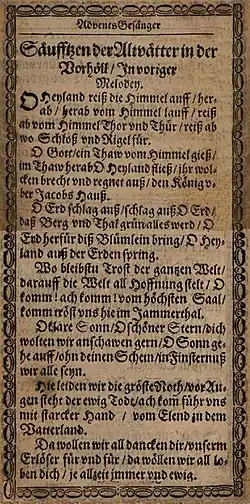 Advents Gesänger
Säufftzen der Altvätter in der
Vorhöll / In voriger
Melodey.
O Heyland reiß die Himmel auff / her-
ab / herab vom Himmel lauff / reiß
ab vom Himmel Thor vnd Thür / reiß ab
wo Schloß vnd Rigel für.
O Gott / ein Thaw vom Himmel gieß /
im Thaw herab O Heyland fließ / jhr wol-
cken brecht vnd regnet auß / den König v-
ber Jacobs Hauß.
O Erd schlag auß / schlag auß O Erd /
daß Berg vnd Thal grün alles werd / O
Erd herfür diß Blümlein bring / O Hey-
land auß der Erden spring.
Wo bleibstu Trost der gantzen Welt /
darauff die Welt all Hoffnung stelt / O
komm! ach komm! vom höchsten Saal /
komm tröst vns hie im Jammerthal.
O klare Sonn / O schöner Stern / dich
wolten wir anschawen gern / O Sonn ge-
he auff / ohn deinen Schein / in Finsternuß
wir alle seyn.
Hie leiden wir die gröste Noth / vor Au-
gen steht der ewig Todt / ach kom führ vns
mit starcker Hand / vom Elend zu dem
Vatterland.
Da wollen wir all dancken dir / vnserm
Erlöser für vnd für / da wöllen wir all lo-
ben dich / je allzeit immer vnd ewig.